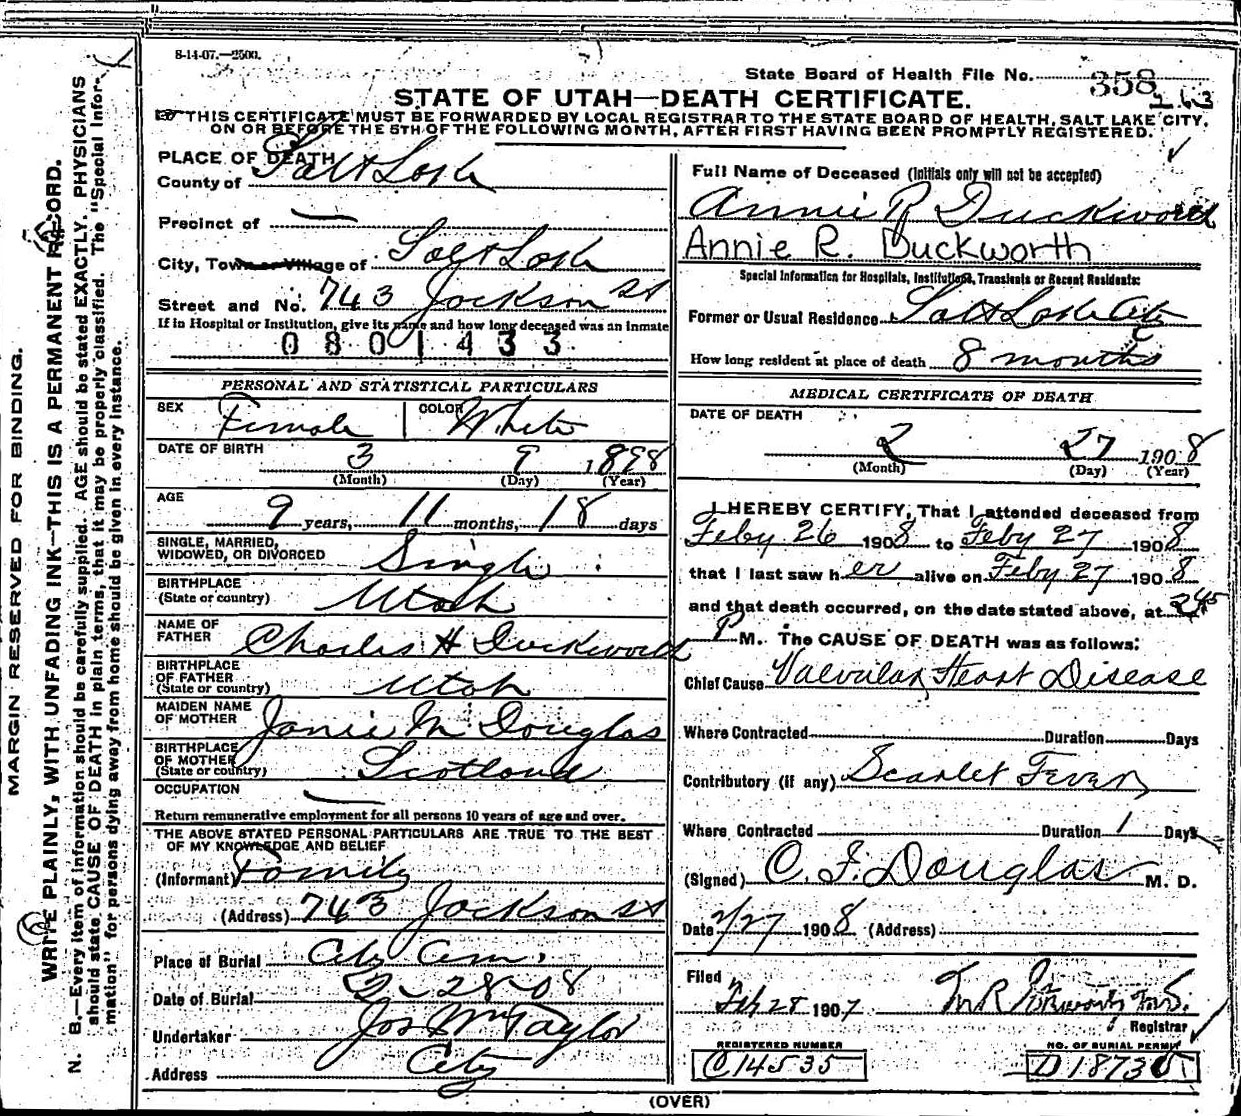 8-14-07.—2500.
State Board of Health File No. 358
263
STATE OF UTAH—DEATH CERTIFICATE.
THIS CERTIFICATE MUST BE FORWARDED BY LOCAL REGISTRAR TO THE STATE BOARD OF HEALTH, SALT LAKE CITY,
ON OR BEFORE THE 5TH OF THE FOLLOWING MONTH, AFTER FIRST HAVING BEEN PROMPTLY REGISTERED.
MARGIN RESERVED FOR BINDING.
WRITE PLAINLY, WITH UNFADING INK—THIS IS A PERMANENT RECORD.
N. B.—Every item of information should be carefully supplied. AGE should be stated EXACTLY. PHYSICIANS
should state CAUSE OF DEATH in plain terms, that it may be properly classified. The "Special Infor-
mation" for persons dying away from home should be given in every instance.
PLACE OF DEATH
County of Salt Lake
Precinct of
City, Town or Village of Salt Lake
Street and No. 743 Jackson St
If in Hospital or Institution, give its name and how long deceased was an inmate
0801433
PERSONAL AND STATISTICAL PARTICULARS
SEX Female COLOR White
DATE OF BIRTH 3 9 1898
(Month) (Day) (Year)
AGE
9 years, 11 months, 18 days
SINGLE, MARRIED,
WIDOWED, OR DIVORCED Single
BIRTHPLACE
(State or country) Utah
NAME OF
FATHER Charles H Duckworth
BIRTHPLACE
OF FATHER
(State or country) Utah
MAIDEN NAME
OF MOTHER Janie M Douglas
BIRTHPLACE
OF MOTHER
(State or country) Scotland
OCCUPATION
Return remunerative employment for all persons 10 years of age and over.
THE ABOVE STATED PERSONAL PARTICULARS ARE TRUE TO THE BEST
OF MY KNOWLEDGE AND BELIEF
(Informant) Family
(Address) 743 Jackson St
Place of Burial City Cem.
Date of Burial 2-28-08
Undertaker Jos Wm Taylor
Address City
Full Name of Deceased (Initials only will not be accepted)
Annie R Duckworth
Annie R. Duckworth
Special Information for Hospitals, Institutions, Transients or Recent Residents:
Former or Usual Residence Salt Lake City
How long resident at place of death 8 months
MEDICAL CERTIFICATE OF DEATH
DATE OF DEATH
2 27 1908
(Month) (Day) (Year)
I HEREBY CERTIFY, That I attended deceased from
Feby 26 1908 to Feby 27 1908
that I last saw her alive on Feby 27 1908
and that death occurred, on the date stated above, at 2 45
P M. The CAUSE OF DEATH was as follows:
Chief Cause Valvular Heart Disease
Where Contracted Duration Days
Contributory (if any) Scarlet Fever
Where Contracted Duration 1 Days
(Signed) C. F. Douglas M. D.
Date 2/27 1908 (Address)
Filed
Feb 28 1907
Registrar
REGISTERED NUMBER NO. OF BURIAL PERMIT
C14535 D18736
(OVER)